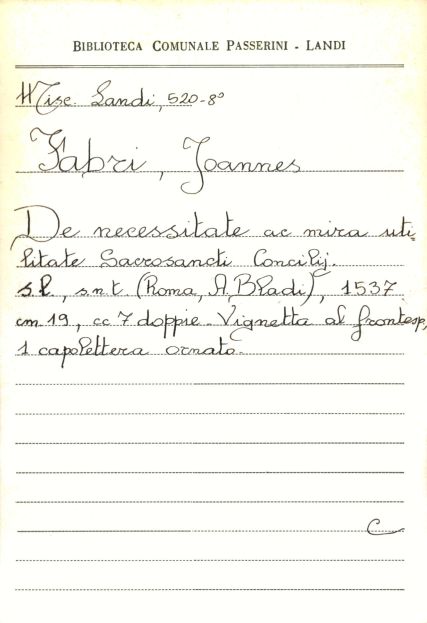 BIBLIOTECA COMUNALE PASSERINI - LANDI
Misc. Landi, 520-8°
Fabri, Joannes
De necessitate ac mira uti-
litate Sacrosancti Concilij.
s.l., s.n.t. (Roma, A. Bladi), 1537
cm 19, cc 7 doppie. Vignetta al frontesp,
1 capolettera ornato.
C